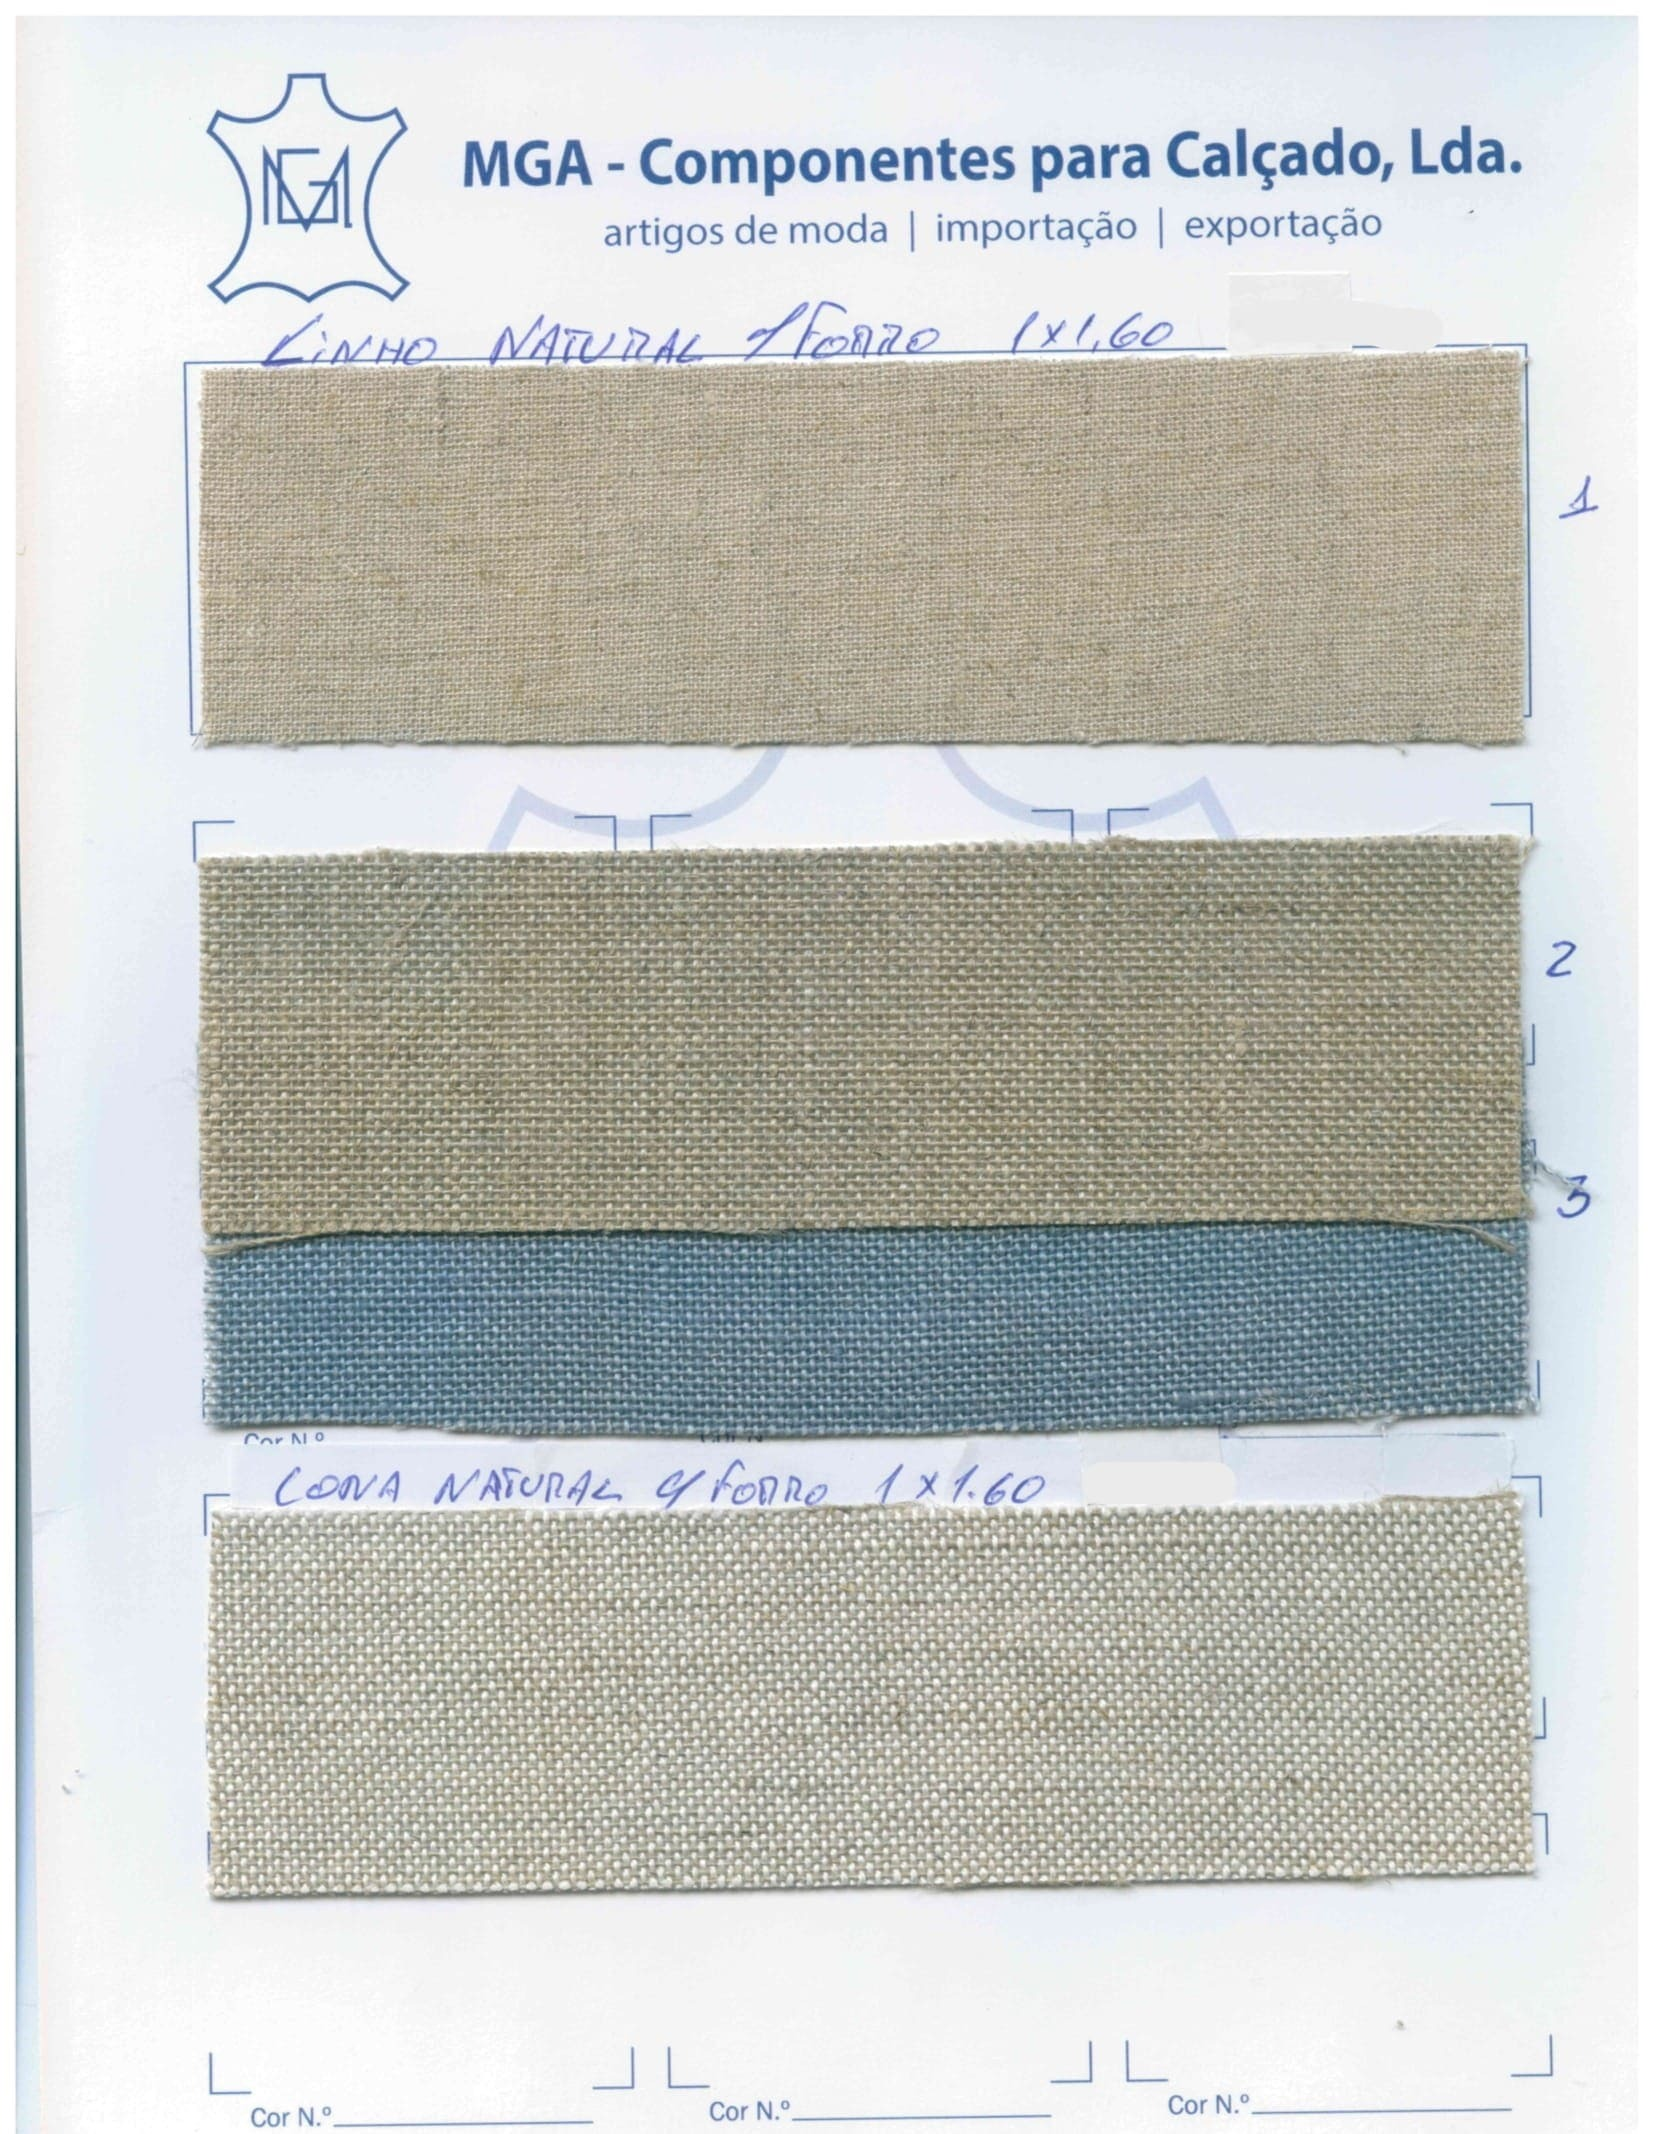 MGA
MGA - Componentes para Calçado, Lda.
artigos de moda | importação | exportação
LINHO NATURAL c/ FORRO 1x1,60
1
2
3
Cor N.º
LONA NATURAL c/ FORRO 1x1.60
Cor N.º
Cor N.º
Cor N.º